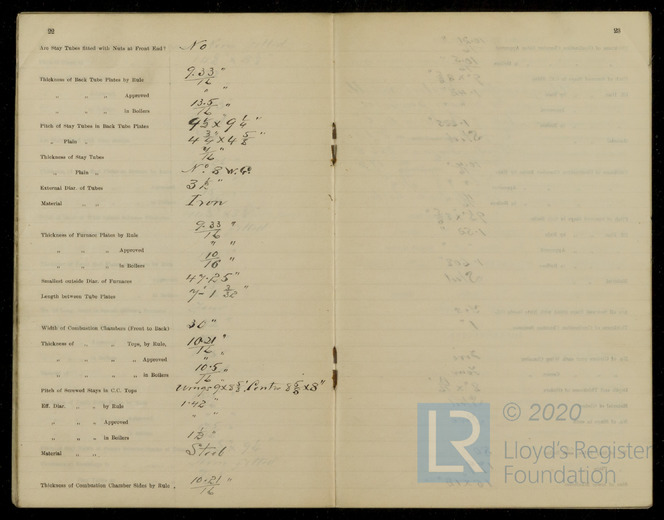 22
Are Stay Tubes fitted with Nuts at Front End? No
Thickness of Back Tube Plates by Rule 9.33/16 "
" " " Approved " "
" " " in Boilers 13.5/16 "
Pitch of Stay Tubes in Back Tube Plates 9½ x 9¼ "
" Plain " 4¾ x 4⅝ "
Thickness of Stay Tubes /16 "
" Plain " No. 8 W.G.
External Diar. of Tubes 3½ "
Material " " Iron
Thickness of Furnace Plates by Rule 9.33/16 "
" " " Approved " "
" " " in Boilers 10/16 "
Smallest outside Diar. of Furnaces 47.25 "
Length between Tube Plates 7'-1 3/32 "
Width of Combustion Chambers (Front to Back) 30 "
Thickness of " " Tops, by Rule, 10.21/16 "
" " " " Approved "
" " " " in Boilers 10.5/16 "
Pitch of Screwed Stays in C.C. Tops Wings 9 x 8⅝" Centre 8⅝ x 8"
Eff. Diar. " " by Rule 1.42 "
" " " Approved " "
" " " in Boilers 1½ "
Material " " Steel
Thickness of Combustion Chamber Sides by Rule 10.21/16 "
23
LR
© 2020
Lloyd's Register
Foundation